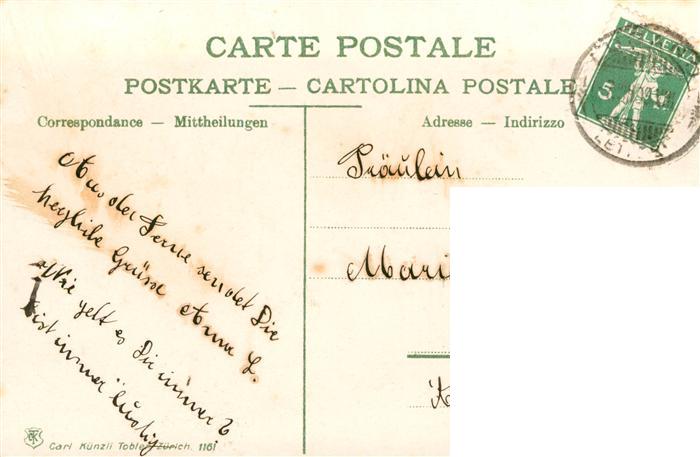 CARTE POSTALE
POSTKARTE — CARTOLINA POSTALE
Correspondance — Mittheilungen
Adresse — Indirizzo
HELVETIA
5
Fräulein
Mari
Aus der Ferne sendet Die
herzliche Grüsse Anna L.
Wie geht es Dir immer?
bist immer lustig
Carl Künzli Tobler Zürich. 1161